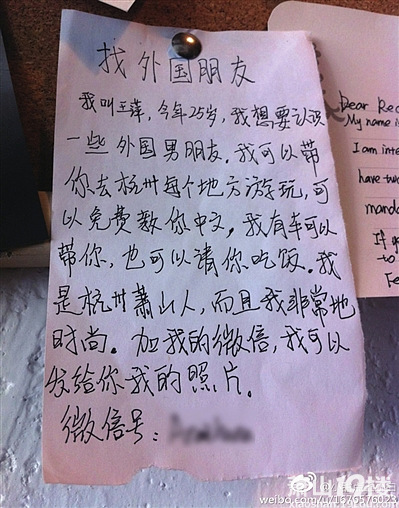 找外国朋友
我叫王萍,今年25岁,我想要认识
一些外国男朋友.我可以带
你去杭州每个地方游玩,可
以免费教你中文.我有车可以
带你,也可以请你吃饭.我
是杭州萧山人,而且我非常地
时尚。加我的微信,我可以
发给你我的照片.
微信号:
Dear Rec
My name i
I am inte
have two
manda
If yo
to
Fe
19楼